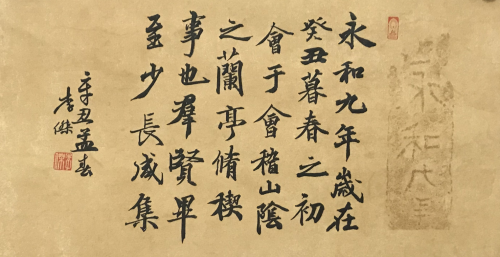 永和
永和九年歲在
癸丑暮春之初
會于會稽山陰
之蘭亭脩禊
事也羣賢畢
至少長咸集
辛丑孟春
李傑